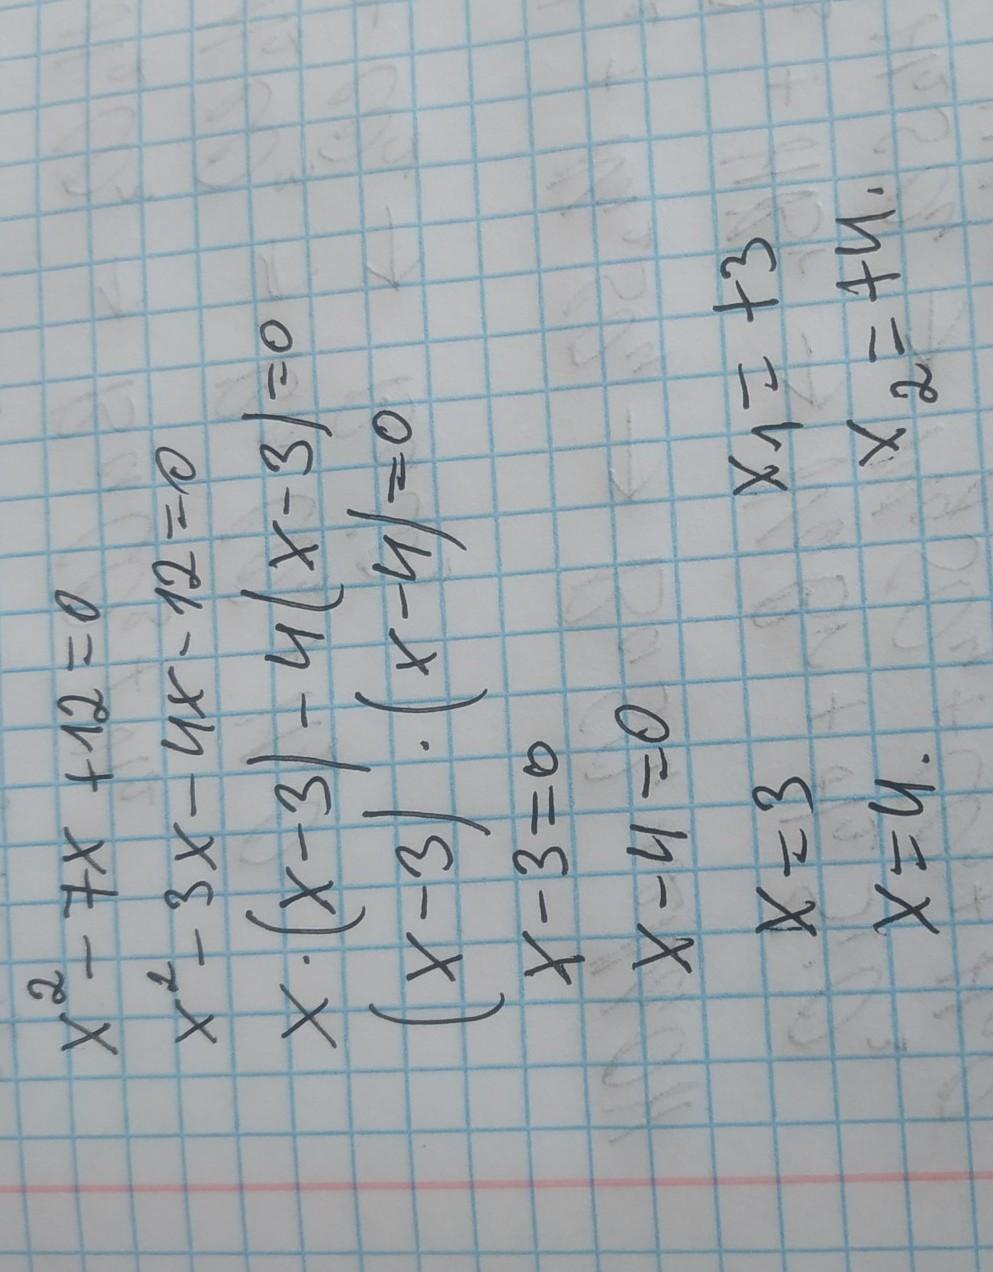 x² - 7x + 12 = 0
x² - 3x - 4x - 12 = 0
x · (x - 3) - 4(x - 3) = 0
(x - 3) · (x - 4) = 0
x - 3 = 0
x - 4 = 0
x = 3 x1 = +3
x = 4. x2 = +4.